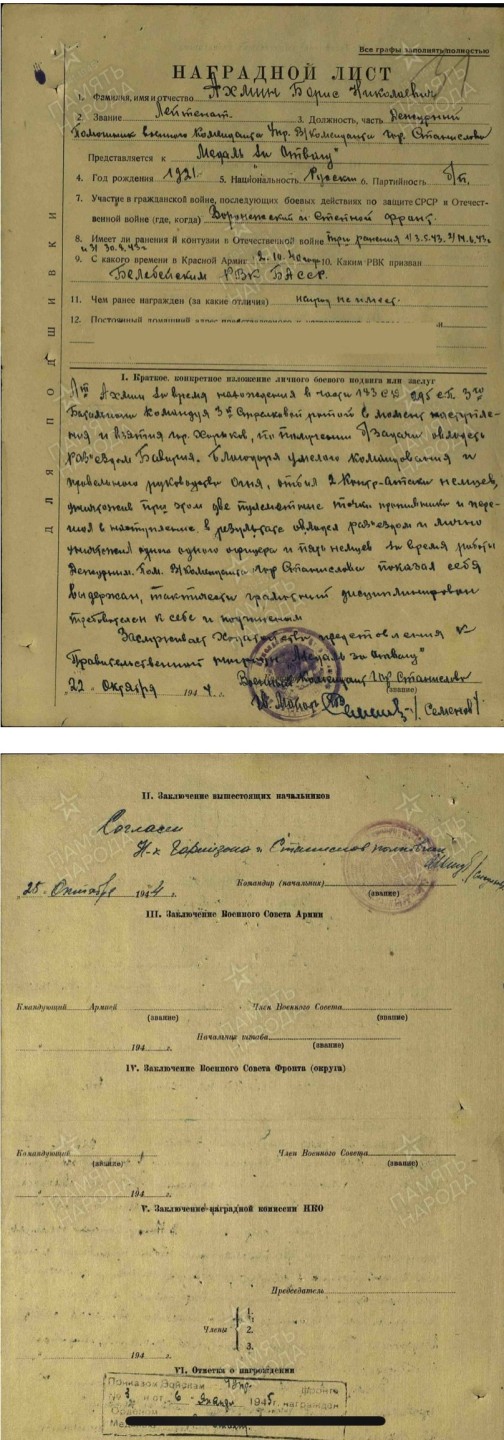 Все графы заполнять полностью
НАГРАДНОЙ ЛИСТ
1. Фамилия, имя и отчество Ахмин Борис Николаевич
2. Звание Лейтенант. 3. Должность, часть Дежурный
Помошник военного Коменданта Упр. В/Коменданта гор. Станислови
Представляется к Медаль За Отвагу"
4. Год рождения 1921 5. Национальность Русский 6. Партийность б/п.
7. Участие в гражданской войне, последующих боевых действиях по защите СССР и Отечест-
венной войне (где, когда) Воронежский и Степной фронт.
8. Имеет ли ранения и контузии в Отечественной войне три ранения 1/ 3.5.43. 2/ 14.6.43г
и 3/ 30.8.43г
9. С какого времени в Красной Армии 2.10.40 года 10. Каким РВК призван
Белебеевским РВК БАССР.
11. Чем ранее награжден (за какие отличия) наград не имеет.
12. Постоянный домашний адрес
ДЛЯ ПОДШИВКИ
I. Краткое, конкретное изложение личного боевого подвига или заслуг
Л-т Ахмин во время нахождения в части СД СП 3го
Баталиона Командуя 3й Стрелковой ротой в момент наступле-
ния и взятия гор. Харьков, по получении б/задачи овладеть
раз'ездом Бавария. Благодоря умелого командования и
провельного руководства огня, отбил 2 Контр-Атаки немцев,
уничтожив при этом две пулеметные точки противника и пере-
шол в наступление в результате овладел раз'ездом и лично
уничтожил одного офицера и пять немцев во время работы
Дежурным. Пом. В/Коменданта гор Станислови показал себя
выдержан, тактически грамотный дисциплинирован
требователен к себе и подчиненым
Заслуживает представления к
Правительственной награде Медаль за отвагу"
"22" Октября 1944 г. Военный Комендант Гор Станислови
(звание)
Майор /Семенов/
II. Заключение вышестоящих начальников
Согласен
Н-к Гарнизона г. Станислов полковник
Командир (начальник)
(звание)
"25" Октября 1944 г.
III. Заключение Военного Совета Армии
Командующий Армией Член Военного Совета
(звание) (звание)
Начальник штаба
(звание)
" " 194 г.
IV. Заключение Военного Совета Фронта (округа)
Командующий Член Военного Совета
(звание) (звание)
" " 194 г.
V. Заключение наградной комиссии НКО
Председатель
Члены 1. 2. 3.
" " 194 г.
VI. Отметка о награждении
Приказом Войскам Укр. Фронта
№ 3 от 6 Января 1945г. награжден
Орденом
ПАМЯТЬ НАРОДА